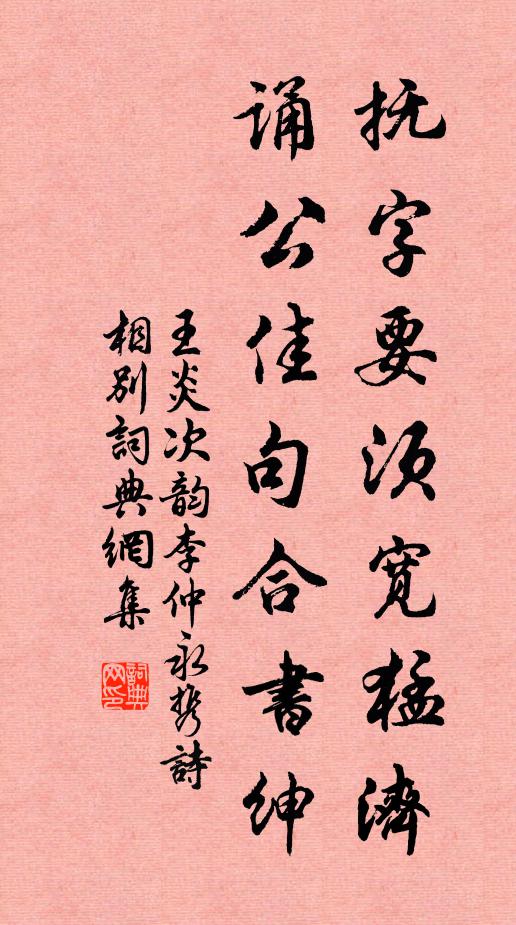 抚字要须宽猛济
诵公佳句合书绅
王炎次韵李仲永携詩
相别詞典網集
詞典网印